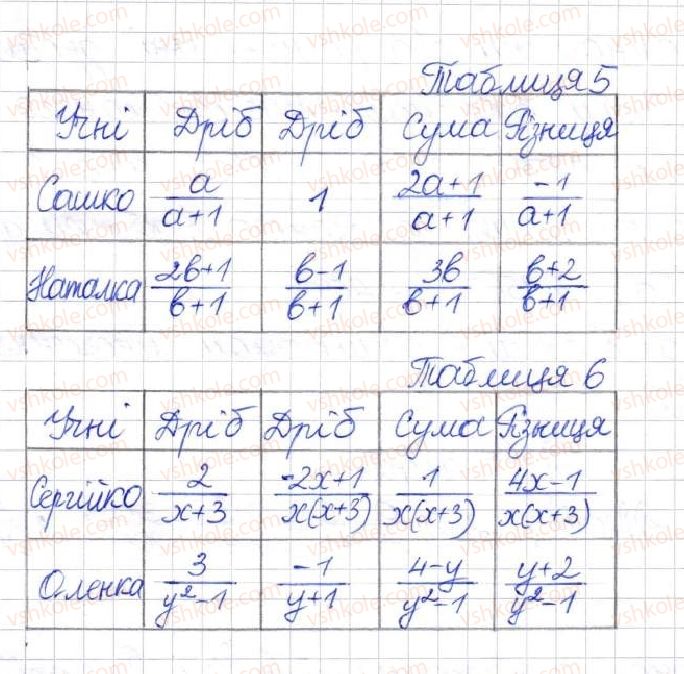 Таблиця 5
Учні | Дріб | Дріб | Сума | Різниця
Сашко | a/(a+1) | 1 | (2a+1)/(a+1) | -1/(a+1)
Наталка | (2в+1)/(в+1) | (в-1)/(в+1) | 3в/(в+1) | (в+2)/(в+1)
Таблиця 6
Учні | Дріб | Дріб | Сума | Різниця
Сергійко | 2/(x+3) | (-2x+1)/(x(x+3)) | 1/(x(x+3)) | (4x-1)/(x(x+3))
Оленка | 3/(y²-1) | -1/(y+1) | (4-y)/(y²-1) | (y+2)/(y²-1)
vshkole.com